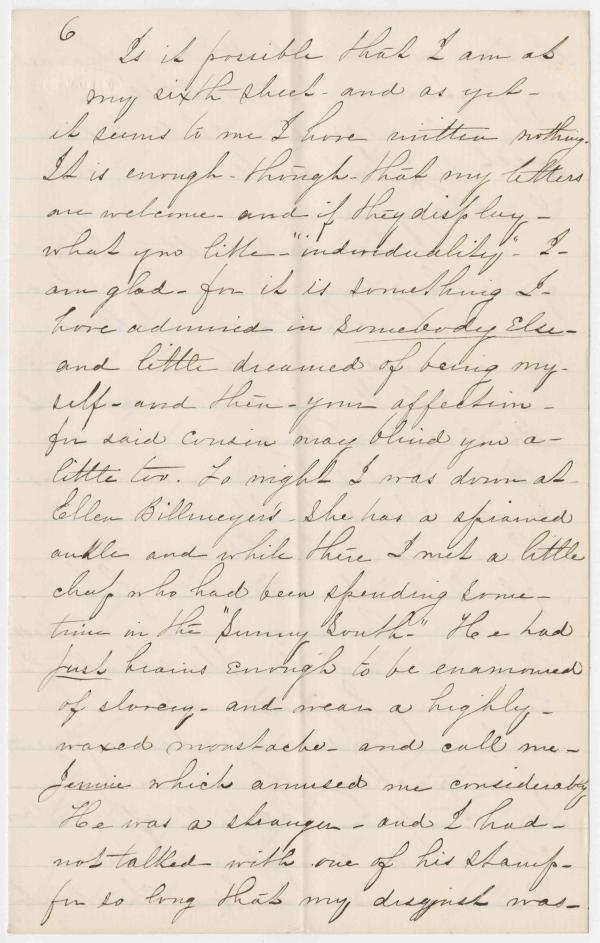 6
Is it possible that I am at
my sixth sheet - and as yet -
it seems to me I have written nothing.
It is enough - though - that my letters
are welcome - and if they display -
what you like - "individuality" - I -
am glad - for it is something I -
have admired in Somebody Else -
and little dreamed of being my-
self - and then - your affection -
for said cousin may blind you a -
little too. To night I was down at -
Ellen Billmeyer's - She has a sprained
ankle and while there I met a little
chap who had been spending some -
time in the "Sunny South -" He had
just brains enough to be enamoured
of slavery - and wear a highly -
waxed moustache - and call me -
Jennie which amused me considerably
He was a stranger - and I had -
not talked with one of his stamp -
for so long that my disgust was -